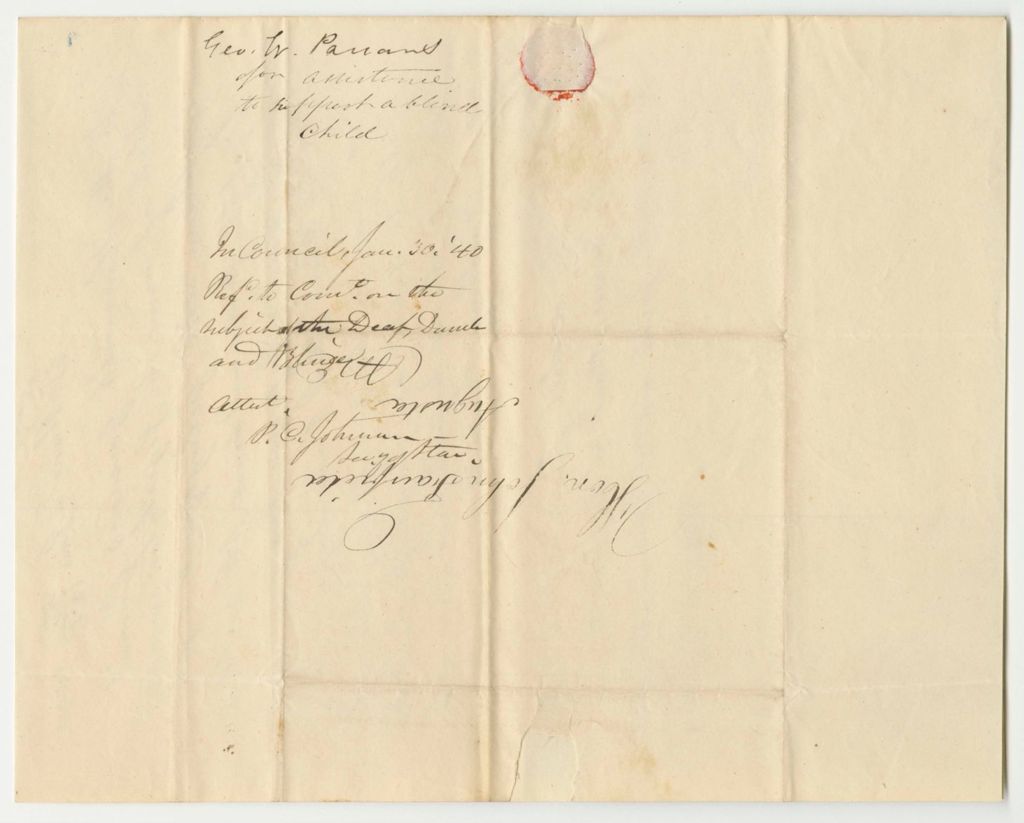 Geo. W. Parsons
for assistance
to support a blind
Child
In Council, Jan. 30. '40
Refd. to Comte. on the
subject of the Deaf, Dumb
and Blind
Attest,
P. C. Johnson
Secy of State
Hon. John Fairfield
Augusta